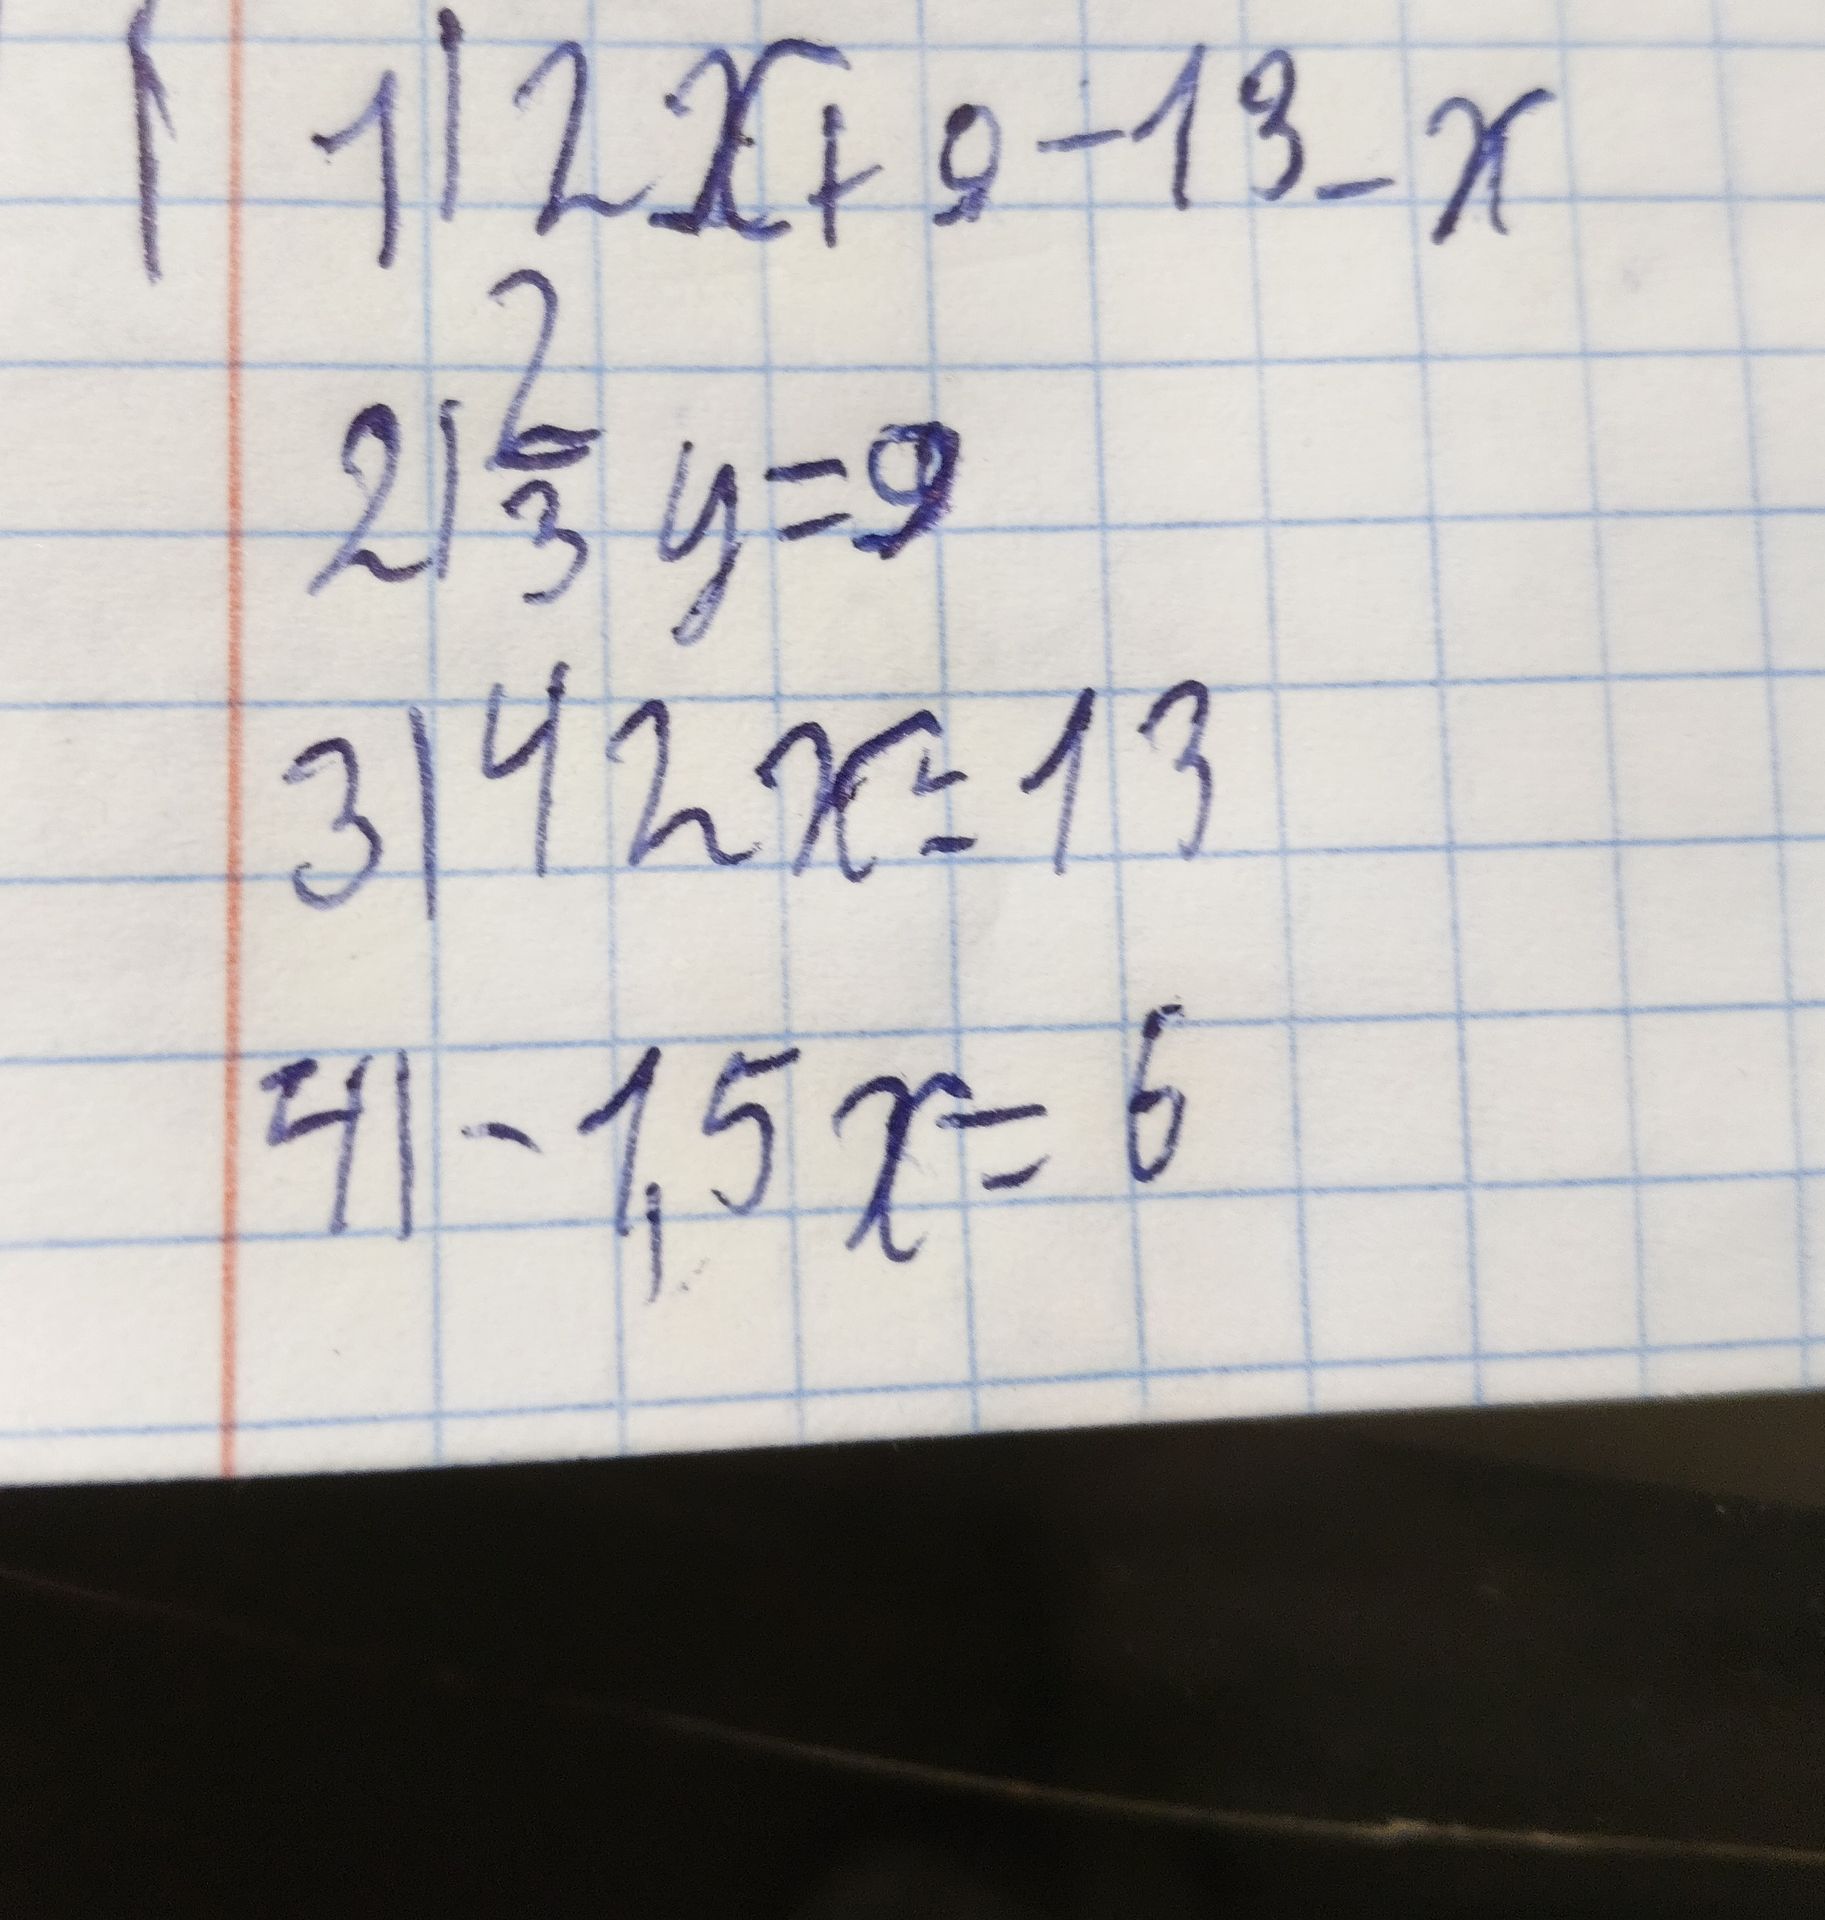 1 1) 2x + 9 - 13 - x
2) 2/3 y = 9
3) 42x = 13
4) - 1,5x = 6